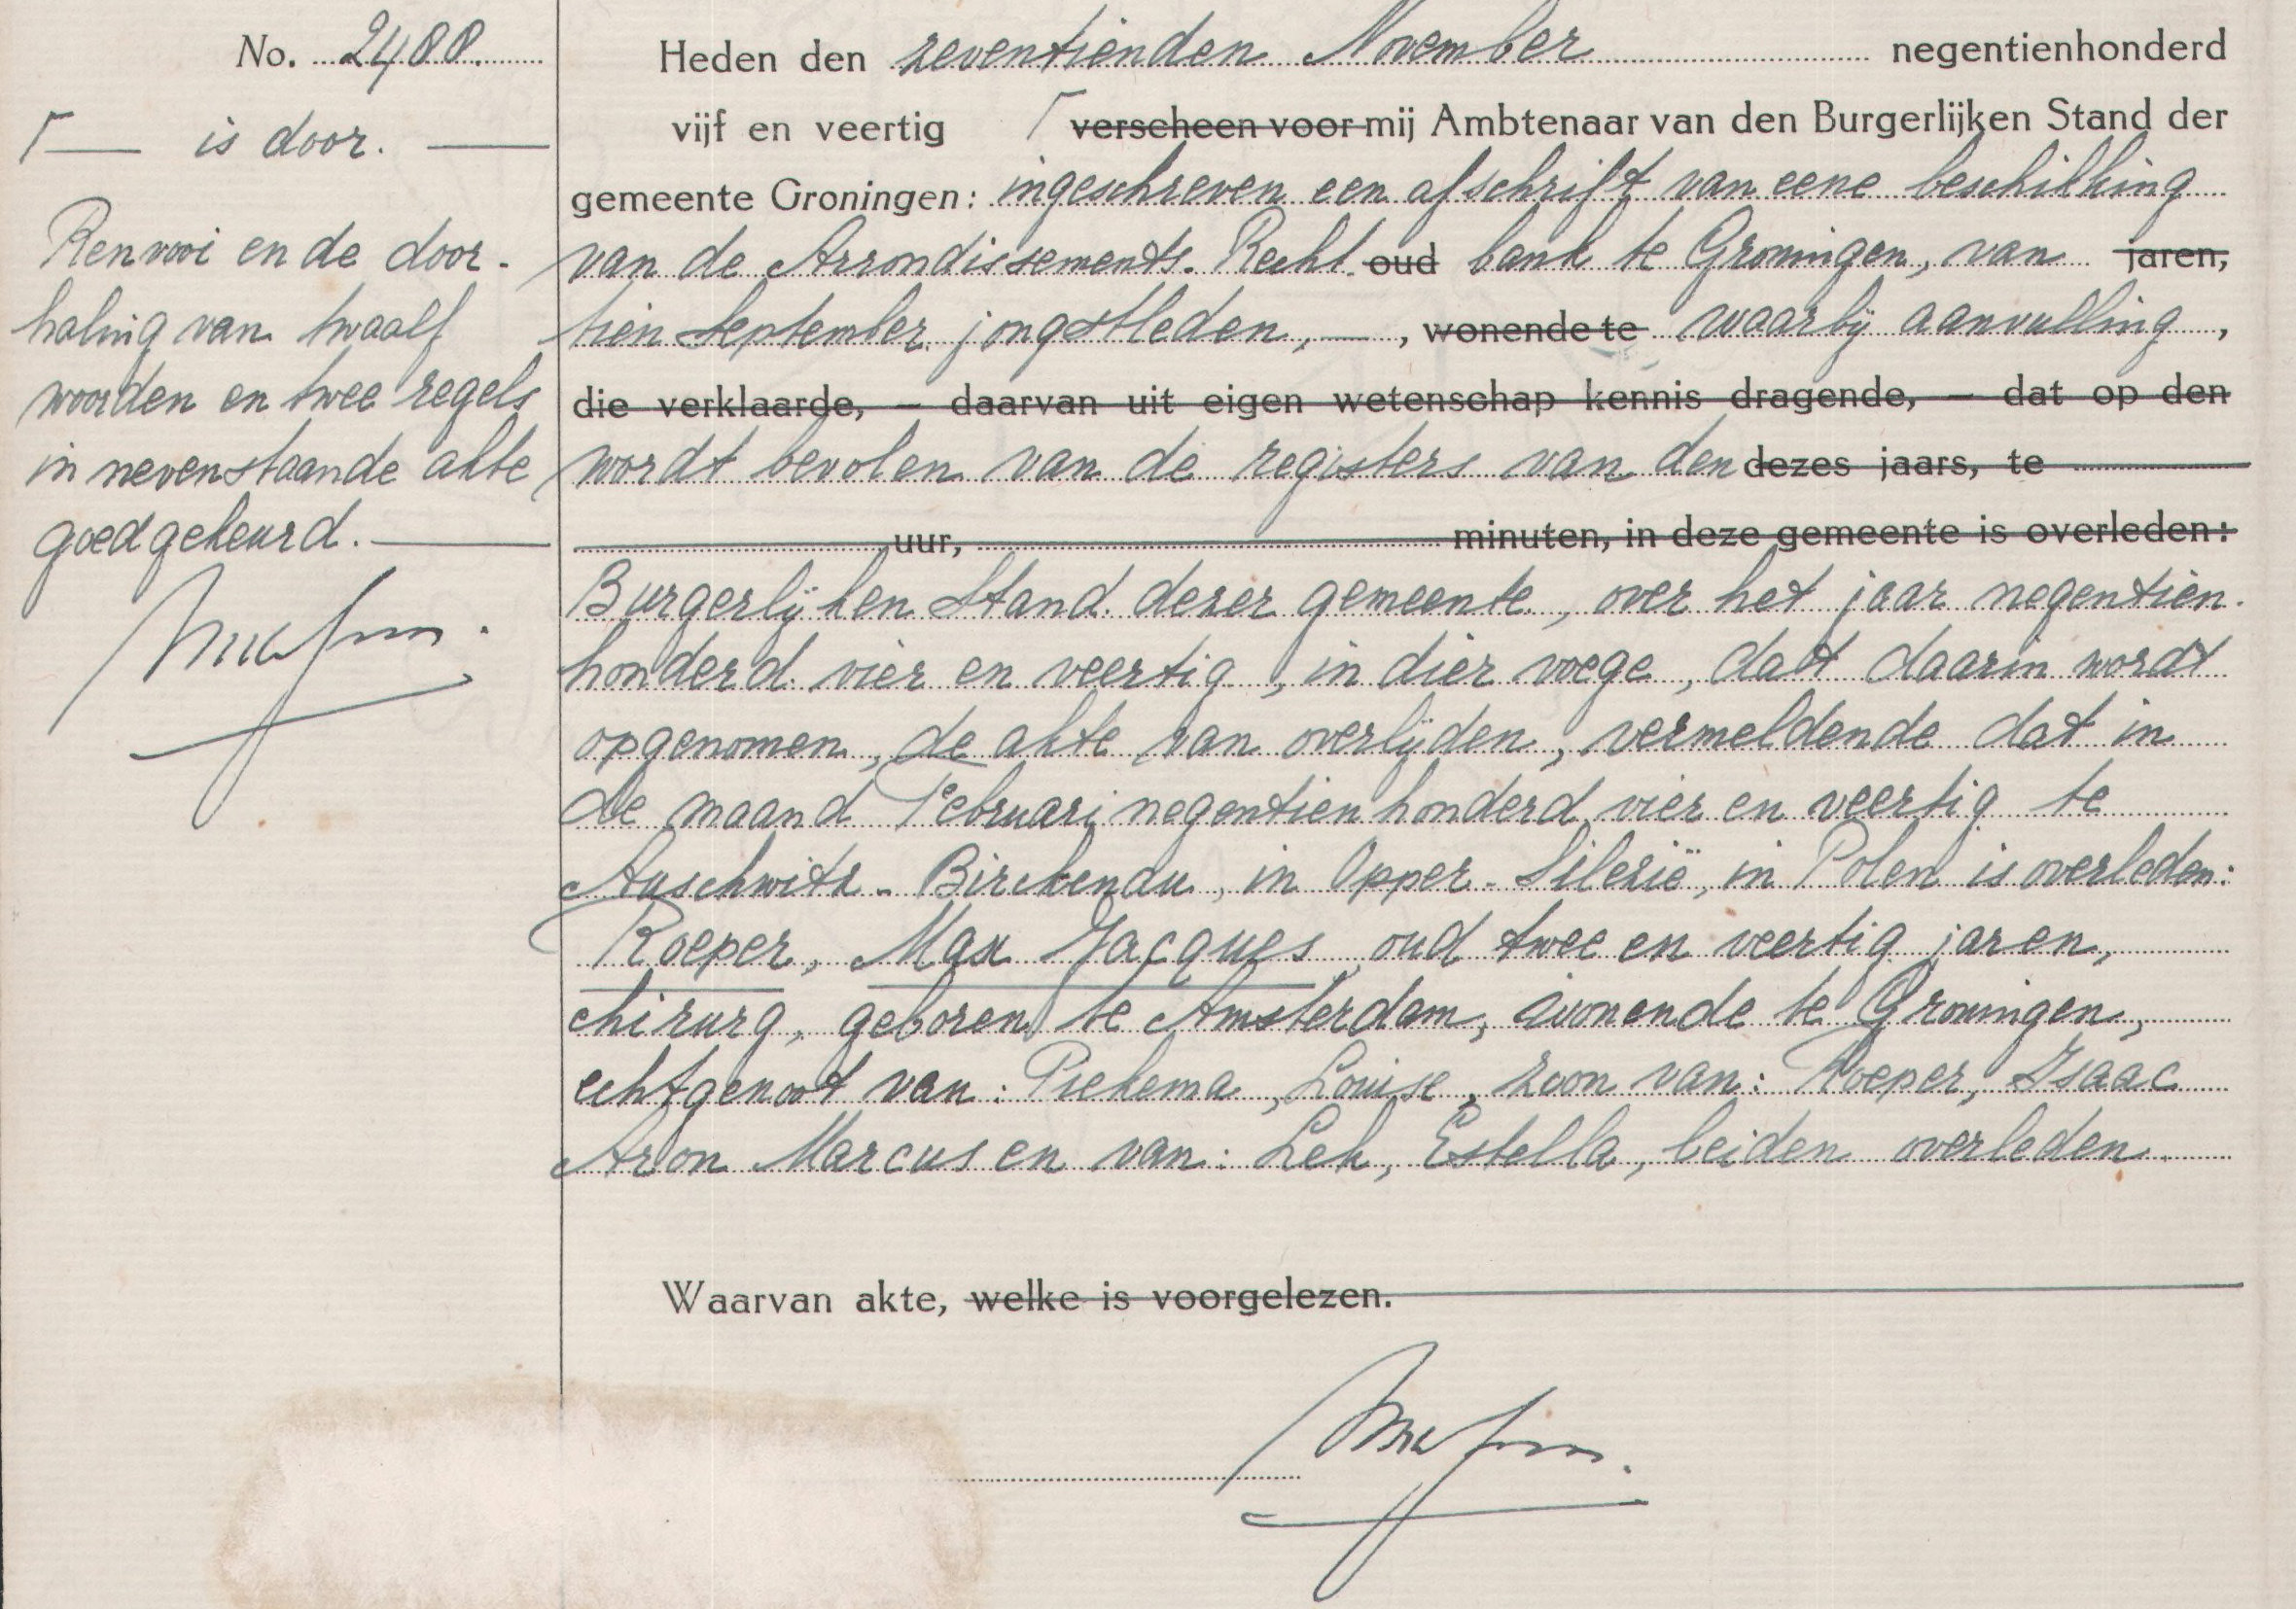 No. 2488.
┌— is door. —
Renvooi en de door-
haling van twaalf
woorden en twee regels
in nevenstaande akte
goedgekeurd. —
Heden den zeventienden November negentienhonderd
vijf en veertig ┌ verscheen voor mij Ambtenaar van den Burgerlijken Stand der
gemeente Groningen: ingeschreven een afschrift van eene beschikking
van de Arrondissements-Recht- oud bank te Groningen, van jaren,
tien September jongstleden, —, wonende te waarbij aanvulling,
die verklaarde, — daarvan uit eigen wetenschap kennis dragende, — dat op den
wordt bevolen van de registers van den dezes jaars, te
uur, minuten, in deze gemeente is overleden:
Burgerlijken Stand dezer gemeente, over het jaar negentien-
honderd vier en veertig, in dier voege, dat daarin wordt
opgenomen, de akte van overlijden, vermeldende dat in
de maand Februari negentienhonderd vier en veertig te
Auschwitz-Birckenau, in Opper-Silezië, in Polen is overleden:
Roeper, Max Jacques, oud twee en veertig jaren,
chirurg, geboren te Amsterdam, wonende te Groningen,
echtgenoot van: Piekema, Louise, zoon van: Roeper, Isaac
Aron Marcus en van: Lek, Estella, beiden overleden.
Waarvan akte, welke is voorgelezen.